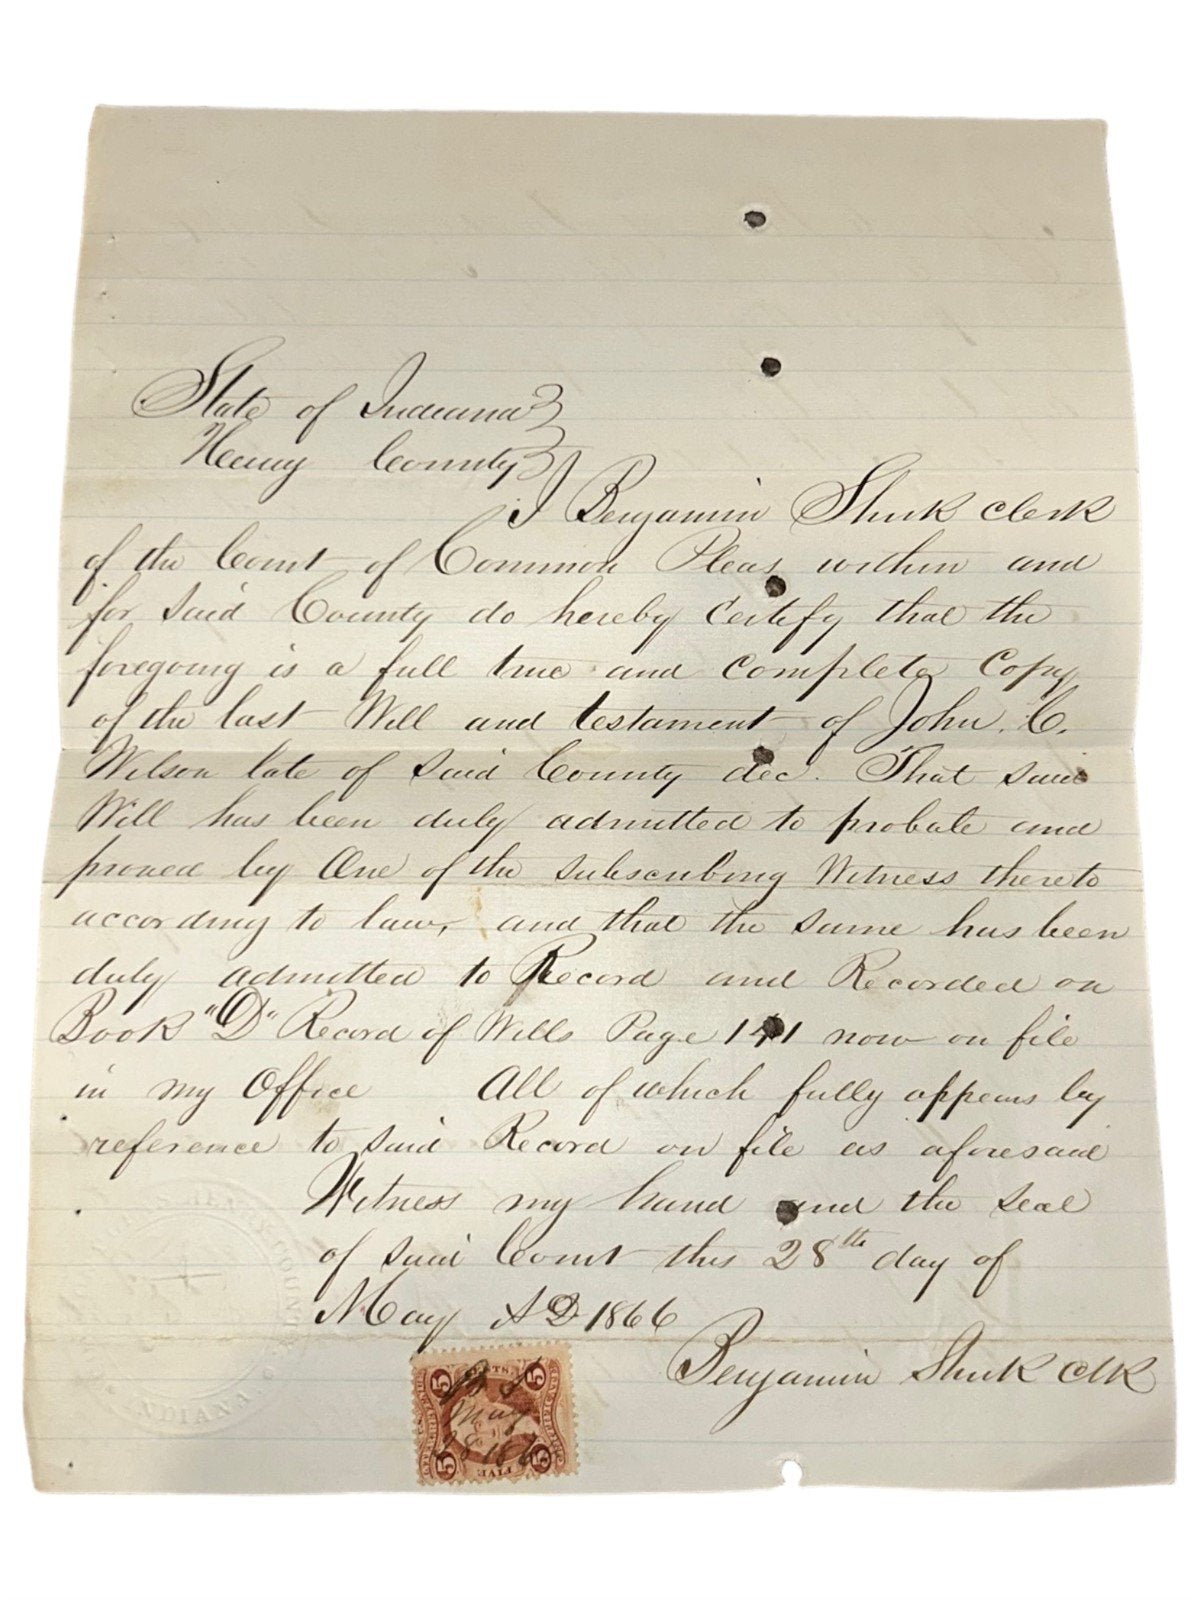 State of Indiana }
Henry County } I Benjamin Shirk Clerk
of the Court of Common Pleas within and
for said County do hereby Certify that the
foregoing is a full true and Complete Copy
of the last Will and testament of John. C.
Wilson late of said County dec. That said
Will has been duly admitted to probate and
proved by One of the subscribing Witness thereto
according to law, and that the same has been
duly admitted to Record and Recorded on
Book "D" Record of Wills Page 141 now on file
in my Office All of which fully appears by
reference to said Record on file as aforesaid
Witness my hand and the seal
of said Court this 28th day of
May AD 1866
Benjamin Shirk Clk
5 CENTS 5
B S
May
28 186
5 FIVE 5
HENRY COUNTY
INDIANA